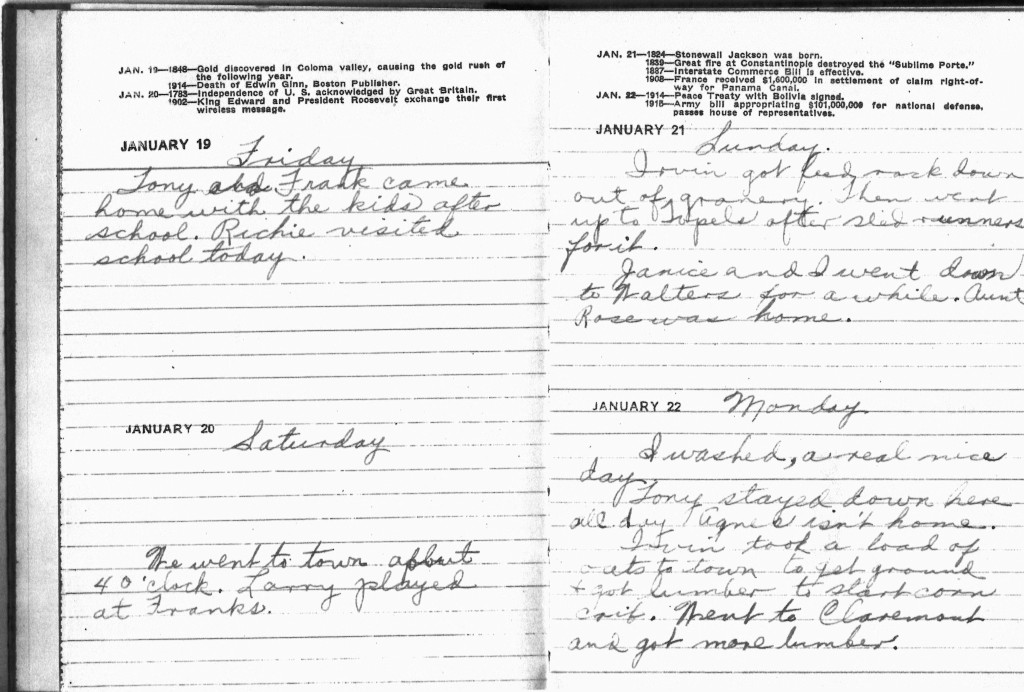 JAN. 19—1848—Gold discovered in Coloma valley, causing the gold rush of
the following year.
1914—Death of Edwin Ginn, Boston Publisher.
JAN. 20—1783—Independence of U. S. acknowledged by Great Britain.
1902—King Edward and President Roosevelt exchange their first
wireless message.
JANUARY 19
Friday
Tony and Frank came
home with the kids after
school. Richie visited
school today.
JANUARY 20
Saturday
We went to town about
4 O'clock. Larry played
at Franks.
JAN. 21—1824—Stonewall Jackson was born.
1839—Great fire at Constantinople destroyed the "Sublime Porte."
1887—Interstate Commerce Bill is effective.
1908—France received $1,600,000 in settlement of claim right-of-
way for Panama Canal.
JAN. 22—1914—Peace Treaty with Bolivia signed.
1918—Army bill appropriating $101,000,000 for national defense,
passes house of representatives.
JANUARY 21
Sunday.
Irvin got feed rack down
out of granery. Then went
up to after sled runners
for it.
Janice and I went down
to Walters for a while. Aunt
Rose was home.
JANUARY 22
Monday
I washed, a real nice
day.
Tony stayed down here
all day Agnes isn't home.
Irvin took a load of
oats to town to get ground
+ got lumber to start corn
crib. Went to Claremont
and got more lumber.